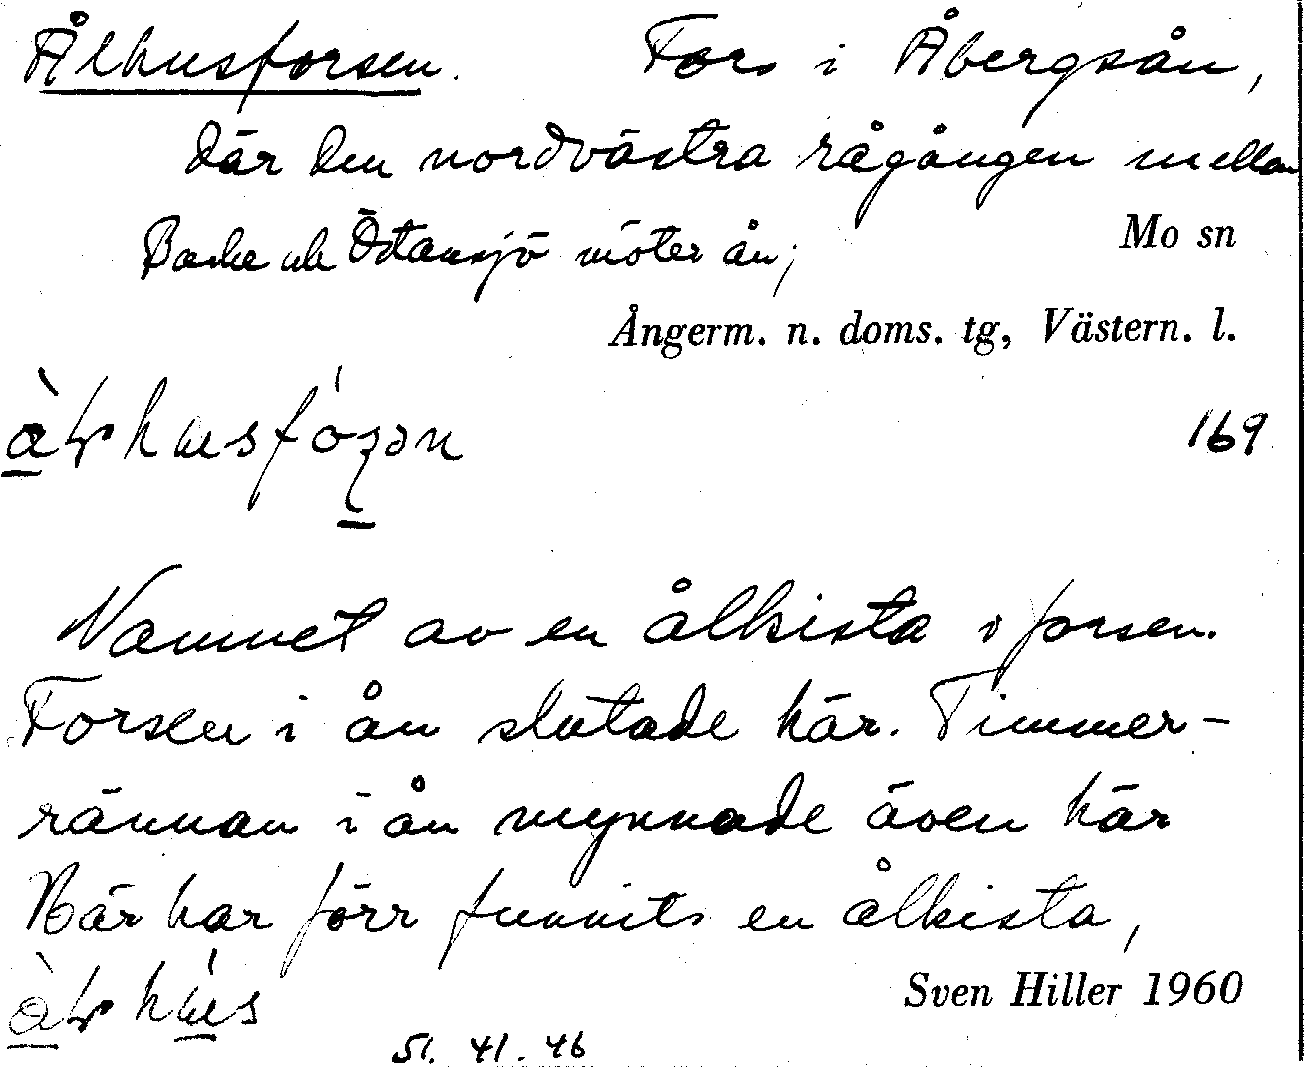 Ålhusforsen. Fors i Åbergsån,
där den nordvästra rågången mellan
Backe och Östansjö möter ån;
Mo sn
Ångerm. n. doms. tg, Västern. l.
169
Namnet av en ålkista i forsen.
Forsen i ån slutade här. Timmer-
rännan i ån mynnade även här
Här har förr funnits en ålkista,
Sven Hiller 1960
51. 41. 46